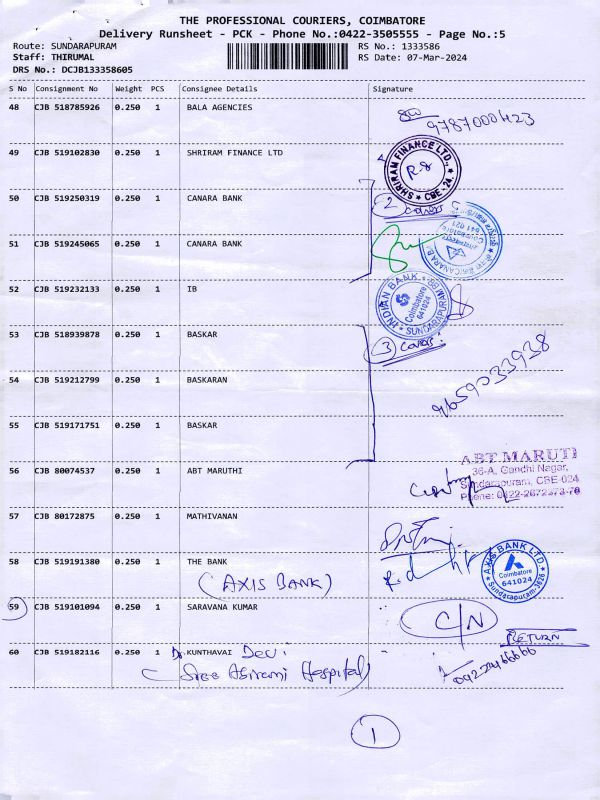 THE PROFESSIONAL COURIERS, COIMBATORE
Delivery Runsheet - PCK - Phone No.:0422-3505555 - Page No.:5
Route: SUNDARAPURAM
Staff: THIRUMAL
DRS No.: DCJB133358605
RS No.: 1333586
RS Date: 07-Mar-2024
S No Consignment No Weight PCS Consignee Details Signature
48 CJB 518785926 0.250 1 BALA AGENCIES
9787000423
49 CJB 519102830 0.250 1 SHRIRAM FINANCE LTD
SHRIRAM FINANCE LTD., CBE-24.
50 CJB 519250319 0.250 1 CANARA BANK
2 covers
51 CJB 519245065 0.250 1 CANARA BANK
CANARA BANK
Coimbatore
641 021
52 CJB 519232133 0.250 1 IB
INDIAN BANK
Coimbatore
641024
SUNDARAPURAM
53 CJB 518939878 0.250 1 BASKAR
3 covers
54 CJB 519212799 0.250 1 BASKARAN
9659033938
55 CJB 519171751 0.250 1 BASKAR
56 CJB 80074537 0.250 1 ABT MARUTHI
ABT MARUTI
36-A, Gandhi Nagar,
Sundarapuram, CBE-024
Phone: 0422-2672373-76
57 CJB 80172875 0.250 1 MATHIVANAN
58 CJB 519191380 0.250 1 THE BANK
(AXIS BANK)
AXIS BANK LTD.
Coimbatore
641024
Sundarapuram-3626
59 CJB 519101094 0.250 1 SARAVANA KUMAR
C/N
RETURN
60 CJB 519182116 0.250 1 Dr. KUNTHAVAI Devi
(Sree Abirami Hospital)
1